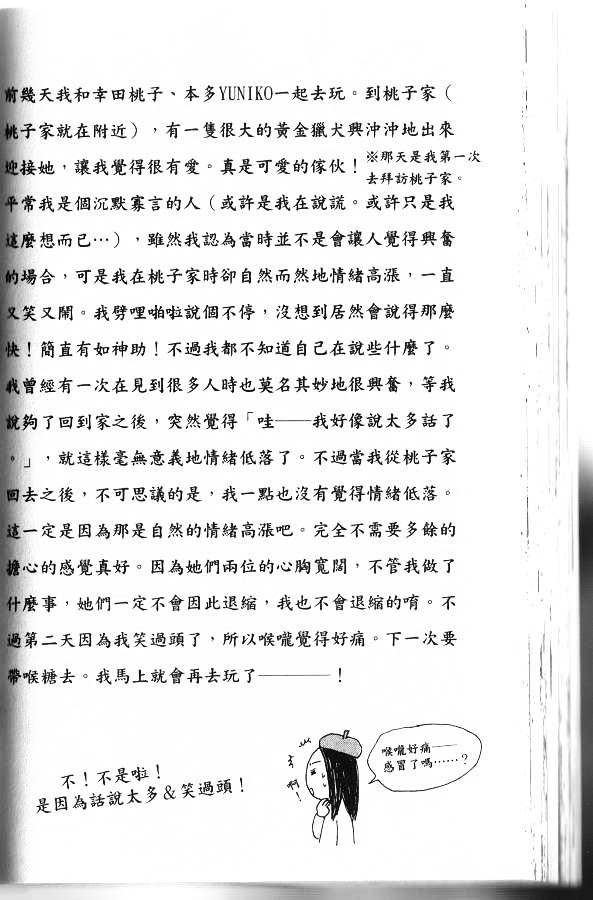 前幾天我和幸田桃子、本多YUNIKO一起去玩。到桃子家（
桃子家就在附近），有一隻很大的黃金獵犬興沖沖地出來
迎接她，讓我覺得很有愛。真是可愛的傢伙！
※那天是我第一次
去拜訪桃子家。
平常我是個沉默寡言的人（或許是我在說謊。或許只是我
這麼想而已…），雖然我認為當時並不是會讓人覺得興奮
的場合，可是我在桃子家時卻自然而然地情緒高漲，一直
又笑又鬧。我劈哩啪啦說個不停，沒想到居然會說得那麼
快！簡直有如神助！不過我都不知道自己在說些什麼了。
我曾經有一次在見到很多人時也莫名其妙地很興奮，等我
說夠了回到家之後，突然覺得「哇——我好像說太多話了
。」，就這樣毫無意義地情緒低落了。不過當我從桃子家
回去之後，不可思議的是，我一點也沒有覺得情緒低落。
這一定是因為那是自然的情緒高漲吧。完全不需要多餘的
擔心的感覺真好。因為她們兩位的心胸寬闊，不管我做了
什麼事，她們一定不會因此退縮，我也不會退縮的唷。不
過第二天因為我笑過頭了，所以喉嚨覺得好痛。下一次要
帶喉糖去。我馬上就會再去玩了————！
喉嚨好痛——
感冒了嗎……？
啊！
不！不是啦！
是因為話說太多＆笑過頭！